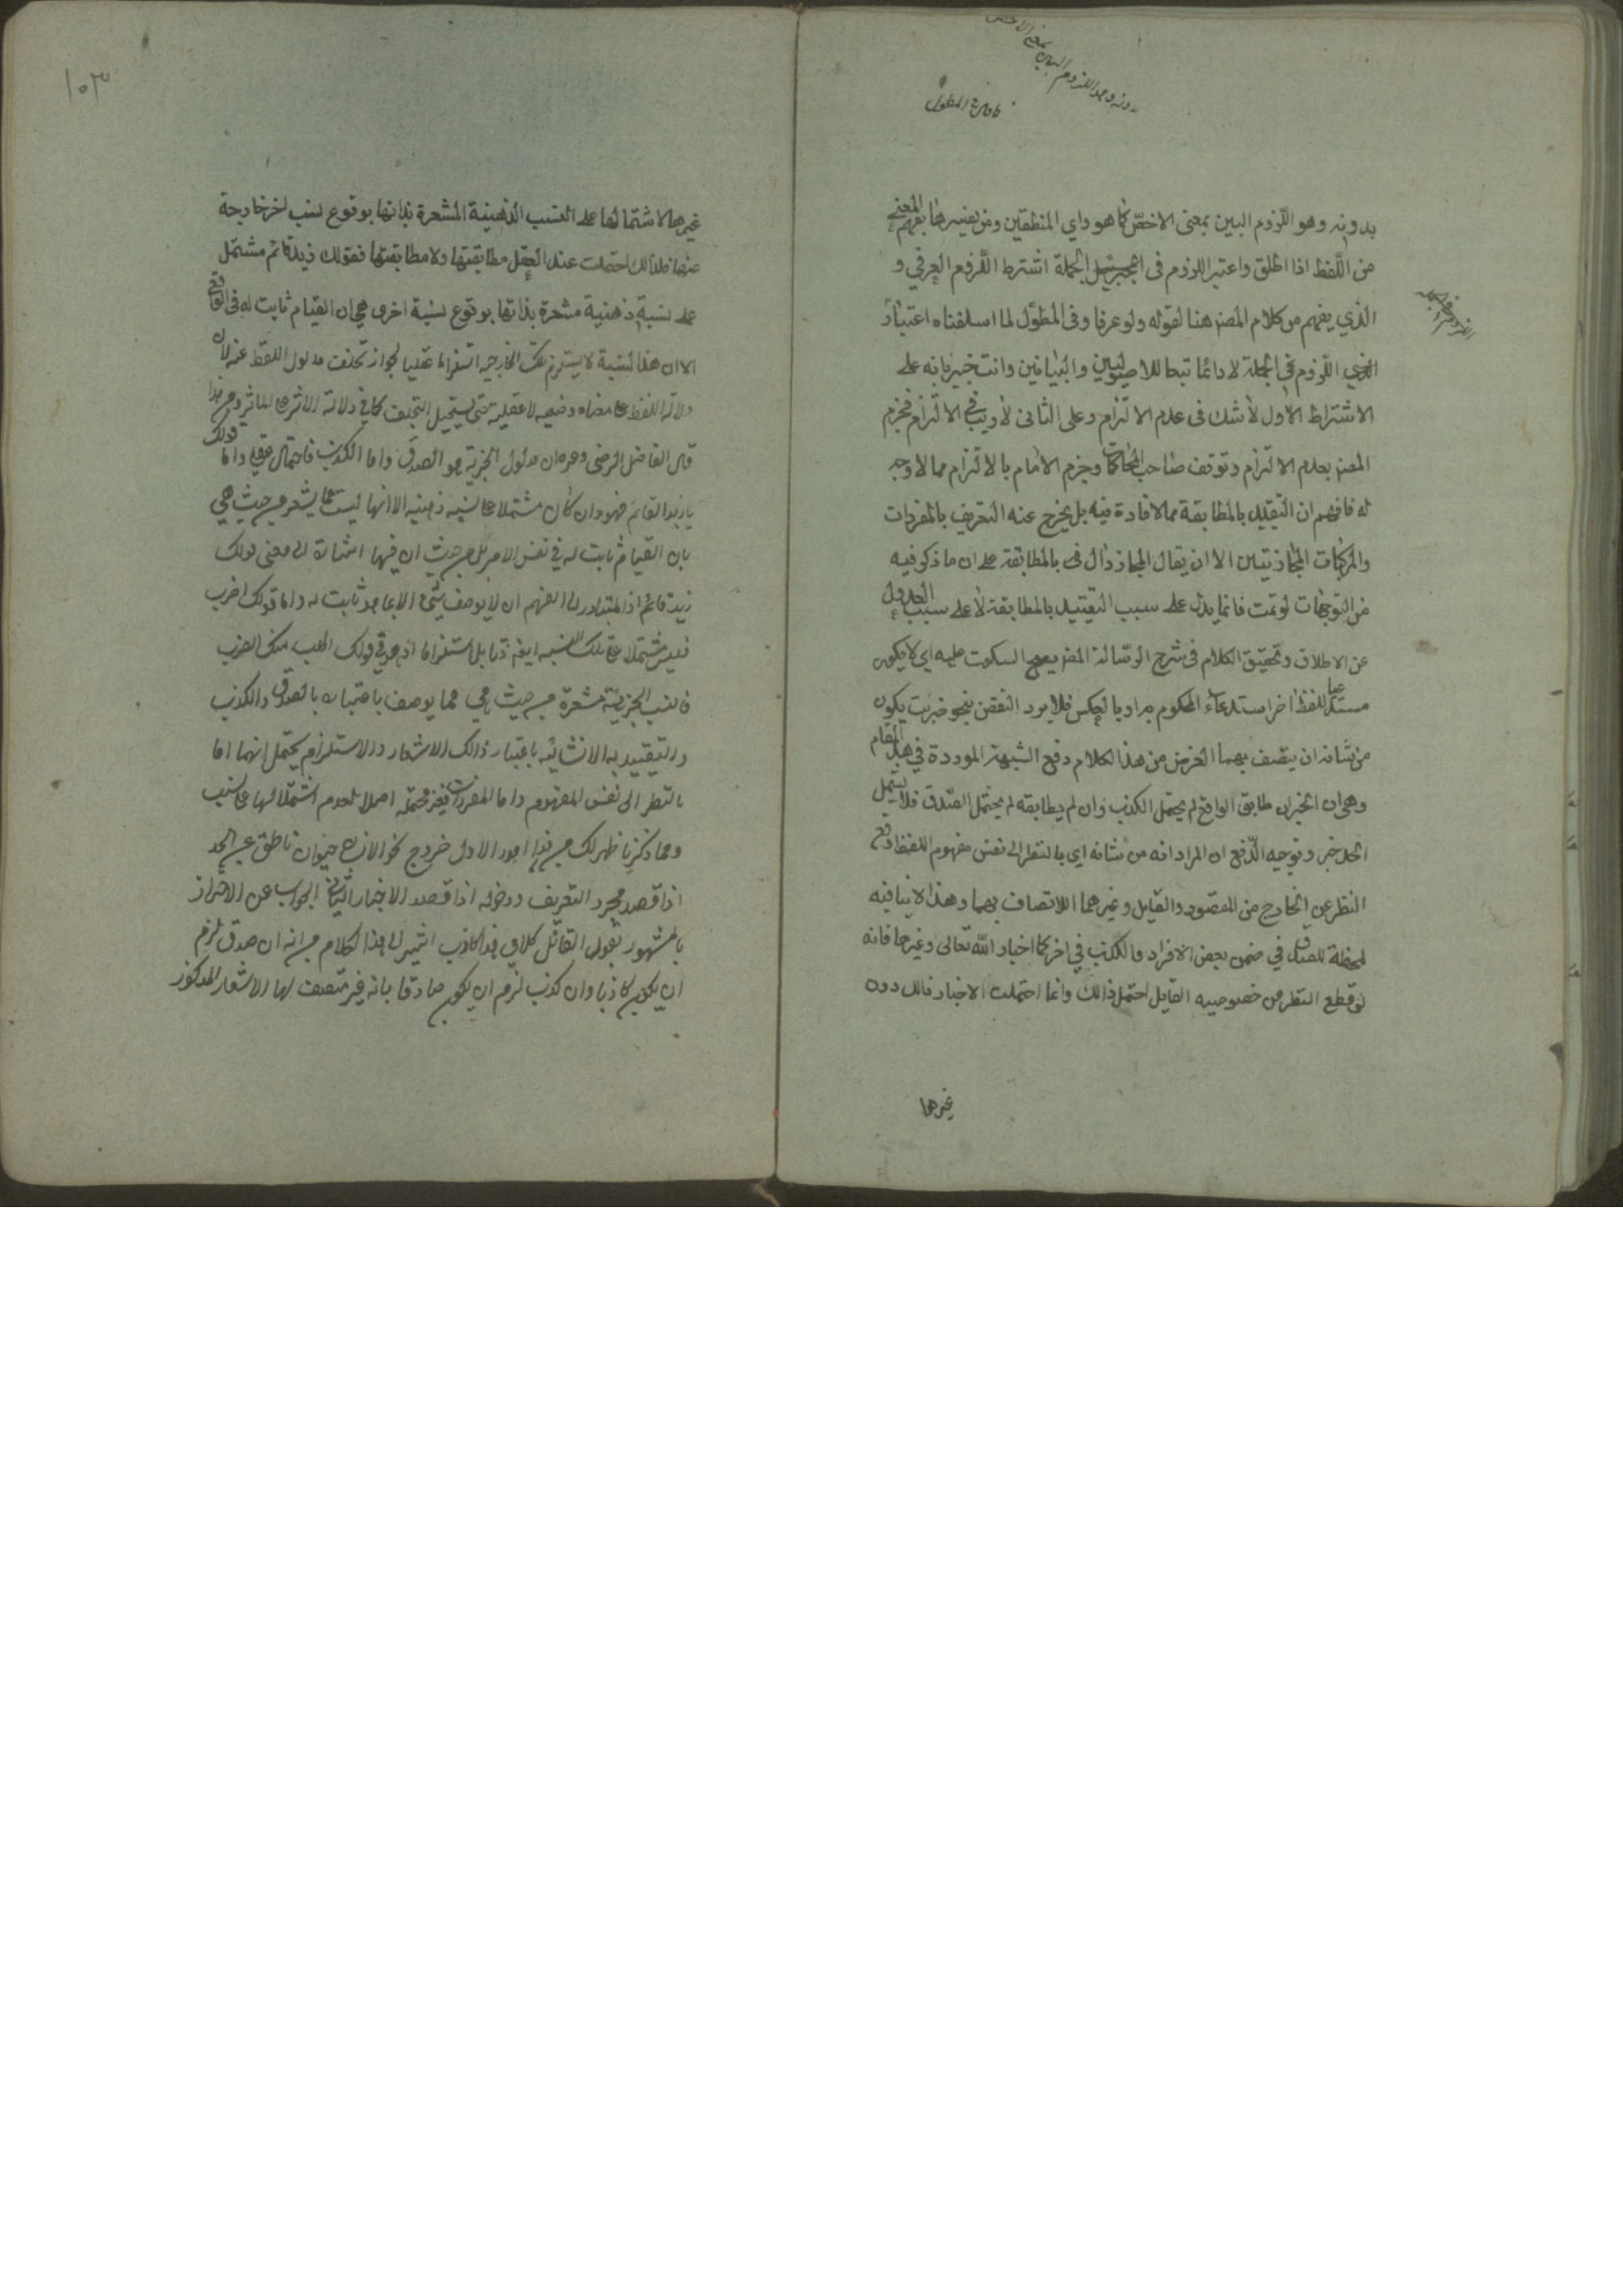 بدونه وهو اللزوم البين بمعنى الاخص
فافهم المطول
بدونه وهو اللزوم البين بمعنى الاخص كما هو راي المنطقين ومن يفسرها بفهم المعنى
من اللفظ اذا اطلق واعتبر اللزوم فى الجملة اشترط اللزوم العرفي و
الذي يفهم من كلام المصنف هنا لقوله ولو عرفا وفى المطول لما اسلفناه اعتبار
اللزوم فى الجملة لا دائما تبعا للاصوليين والبيانين وانت خبير بانه على
الاشتراط الاول لا شك فى عدم الالتزام وعلى الثانى لا ريب فى الالتزام فجزم
المصنف بعدم الالتزام وتوقف صاحب المحاكمات وجزم الامام بالالتزام مما لا وجه
له فافهم ان التقييد بالمطابقة مما لا فادة فيه بل يخرج عنه التعريف بالمفردات
والمركبات المجازيتين الا ان يقال المجاز دال فى بالمطابقة على ان ما ذكر فيه
من التوجهات لو تمت فانما يدل على سبب التقييد بالمطابقة لا على سبب العدول
عن الاطلاق وتحقيق الكلام فى شرح الرسالة المصنف يصح السكوت عليه اي لا يكون
مستدعيا للفظ اخر استدعاء المحكوم به او بالعكس فلا يرد النقض بنحو ضربت يكون
من شانه ان يتصف بهما الغرض من هذا الكلام دفع الشبهة الموردة في هذا المقام
وهى ان الخبر ان طابق الواقع لم يحتمل الكذب وان لم يطابقه لم يحتمل الصدق فلا يشمل
الحد خبر وتوجيه الدفع ان المراد انه من شانه اي بالنظر الى نفس مفهوم اللفظ وقطع
النظر عن الخارج من المقصود والقايل وغيرهما الاتصاف بهما وهذا لا ينافيه
لحظة للصدق في ضمن بعض الافراد والكذب في اخر كما اخبار الله تعالى وغيرها فانه
لو قطع النظر من خصوصيه القايل احتمل ذالك وانما احتملت الاخبار ذالك دون
غيرها
١٠٣
غيرها لاشتمالها على النسب الذهنية المشعرة بذاتها بوقوع نسب اخر خارجة
عنها فلذالك احتملت عند العقل مطابقتها ولا مطابقتها فقولك زيد قائم مشتمل
على نسبة ذهنية مشعرة بذاتها بوقوع نسبة اخرى هي ان القيام ثابت له فى الواقع
الا ان هذا لنسبة لا يستلزم تلك الخارجية استلزاما عقليا لجواز تخلف مدلول اللفظ عنه لان
دلالة اللفظ على معناه وضعيه لا عقلية حتى يستحيل التخلف كما في دلالة الاثر على المؤثر ومن هذا
قال الفاضل الرضى وغيره ان مدلول الخبر هو الصدق واما الكذب فاحتمال عقلي واما قولك
يا زيد القائم فهو وان كان مشتملا على نسبه ذهنيه الا انها ليست مما يشعر من حيث هي
بان القيام ثابت له في نفس الامر بل من حيث ان فيها اشارة الى معنى قولك
زيد قائم اذ المتبادر الى الفهم ان لا يوصف شئ الا بما هو ثابت له واما قولك اضرب
فليس مشتملا على تلك النسبه ايضا ذاتا بل استلزاما اذ هو في قولك اطلب منك الضرب
فالنسب الخبرية مشعرة من حيث هي هي مما يوصف باعتباره بالصدق والكذب
والتقييديه الانشائيه باعتبار ذالك الاشعار والاستلزام يحتمل انهما اما
بالنظر الى نفس المفهوم واما المفردات فغير محتمله اصلا لعدم اشتمالها على نسب
ومما ذكرنا ظهر لك من هذا امور الاول خروج نحو الانسان حيوان ناطق عن الحد
اذا قصد مجرد التعريف ودخوله اذا قصد الاخبار الثاني الجواب عن الاعتراض
بالمشهور بقول القائل كلامي هذا كاذب اشير الى هذا الكلام من انه ان صدق لزم
ان يكون كاذبا وان كذب لزم ان يكون صادقا بانه غير متصف لها الاشعار المذكور